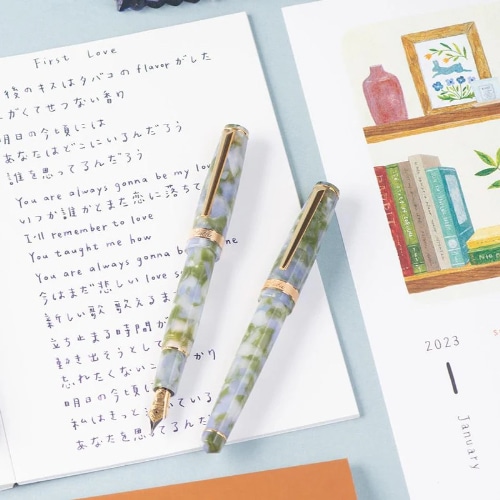 First Love
後のキスはタバコの flavor がした
がくてせつない香り
明日の今頃には
あなたはどこにいるんだろう
誰を思ってるんだろう
You are always gonna be my lov
いつか誰かとまた恋に落ちて
I'll remember to love
You taught me how
You are always gonna be ne
今はまだ悲しい love s
新しい歌 歌えるま
立ち止まる時間が
動き出そうとして
忘れたくないこ かり
明日の今頃に
私はきっと ている
あなたを思ってるんだ
2023
January